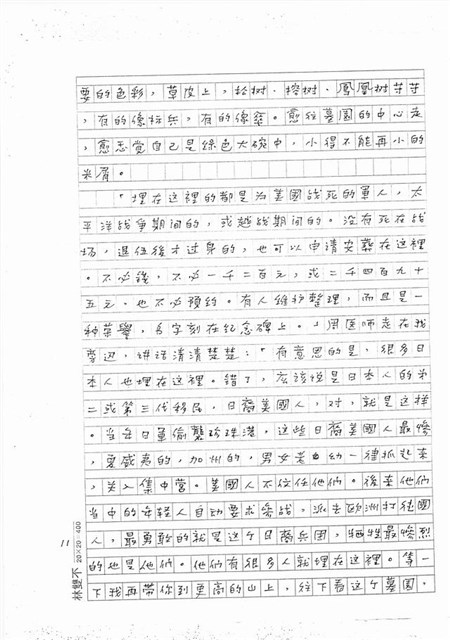 要的色彩，草皮上，松树、榕树、鳳凰树芊芊
，有的像标兵，有的像傘。愈往墓園的中心走
，愈忘觉自己是綠色大碗中，小得不能再小的
米屑。
「埋在這裡的都是为美國战死的軍人，太
平洋战争期间的，或越战期间的。沒有死在战
场，退伍後才过身的，也可以申请安葬在這裡
。不必錢，不必一千二百元，或二千四百九十
五元。也不必預约。有人维护整理，而且是一
种荣譽，名字刻在纪念碑上。」周医师走在我
旁边，讲话清清楚楚：「有意思的是，很多日
本人也埋在這裡。错了，应該说是日本人的第
二或第三代移民，日裔美國人，对，就是这样
。当年日軍偷襲珍珠港，這些日裔美國人最慘
，夏威夷的，加州的，男女老幼一律抓起來
，关入集中营。美國人不信任他们。後來他们
当中的年轻人自动要求參战，派去欧洲打德國
人，最勇敢的就是这个日裔兵团，牺牲最慘烈
的也是他们。他们有很多人就埋在這裡。等一
下我再带你到更高的山上，往下看这个墓園，
11
20×20＝400
林雙不